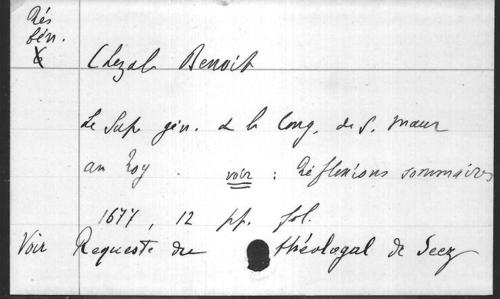 Rés
bén.
6
Chezal Benoit
Le Sup. gén. de la Cong. de S. Maur
au Roy. voir : Réflexions sommaires
1677, 12 pp. fol.
Voir Requeste du théologal de Seez